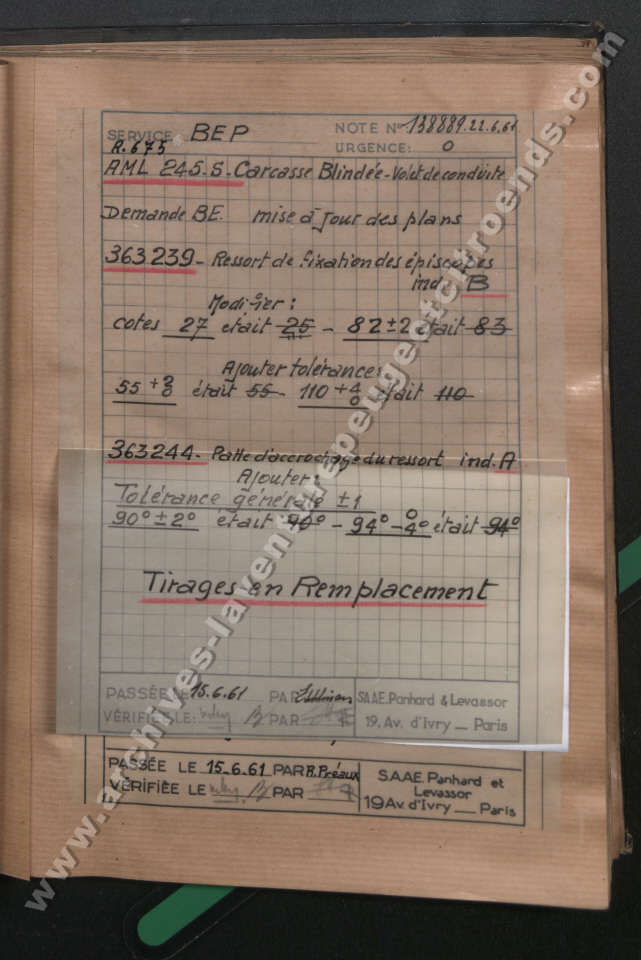 SERVICE BEP NOTE N° 138889.22.6.61
R.675 URGENCE: 0
AML 245.S. Carcasse Blindée - Volet de conduite
Demande BE. mise à jour des plans
363239 - Ressort de fixation des épiscopes
ind. B
Modifier:
cotes 27 était 25 - 82±2 était 83
Ajouter tolérances
55 +2 0 était 55 - 110 +4 0 était 110
363244 - Patte d'accrochage du ressort ind. A
Ajouter:
Tolérance générale ±1
90°±2° était 90° - 94° 0 -4° était 94°
Tirages en Remplacement
PASSÉE LE 15.6.61 PAR SAAE. Panhard & Levassor
VÉRIFIÉE LE: PAR 19. Av. d'Ivry _ Paris
PASSÉE LE 15.6.61 PAR R.Préaux S.A.A.E. Panhard et
Levassor
VÉRIFIÉE LE PAR 19 Av. d'Ivry _ Paris
www.archives-laventurepeugeotcitroends.com